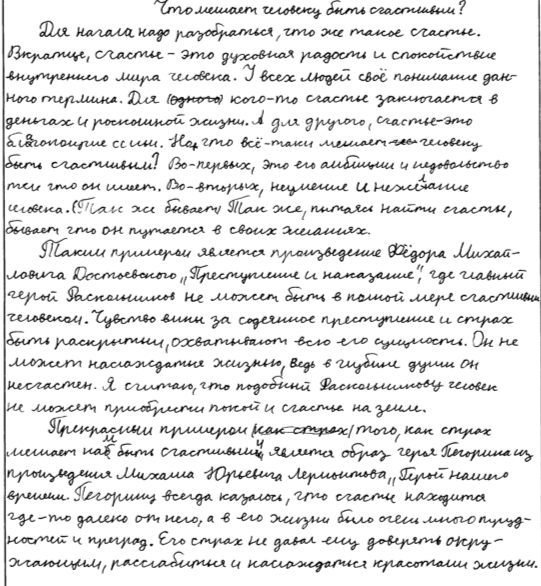 Что мешает человеку быть счастливым?
Для начала надо разобраться, что же такое счастье.
Вкратце, счастье - это духовная радость и спокойствие
внутреннего мира человека. У всех людей своё понимание дан-
ного термина. Для (одного) кого-то счастье заключается в
деньгах и роскошной жизни. А для другого, счастье-это
благополучие семьи. Но, что всё-таки мешает человеку
быть счастливым? Во-первых, это его амбиции и недовольство
тем что он имеет. Во-вторых, неумение и нежелание
человека. (Так же бывает) Так же, пытаясь найти счастье,
бывает что он путается в своих желаниях.
Таким примером является произведение Фёдора Михай-
ловича Достоевского „Преступление и наказание", где главный
герой Раскольников не может быть в полной мере счастливым
человеком. Чувство вины за содеянное преступление и страх
быть раскрытым, охватывают всю его сущность. Он не
может наслаждаться жизнью, ведь в глубине души он
несчастен. Я считаю, что подобный Раскольникову человек
не может приобрести покой и счастье на земле.
Прекрасным примером (как страх) того, как страх
мешает нам быть счастливыми, является образ героя Печорина из
произведения Михаила Юрьевича Лермонтова „Герой нашего
времени. Печорину всегда казалось, что счастье находится
где-то далеко от него, а в его жизни было очень много труд-
ностей и преград. Его страх не давал ему доверять окру-
жающим, расслабиться и наслаждаться красотами жизни.